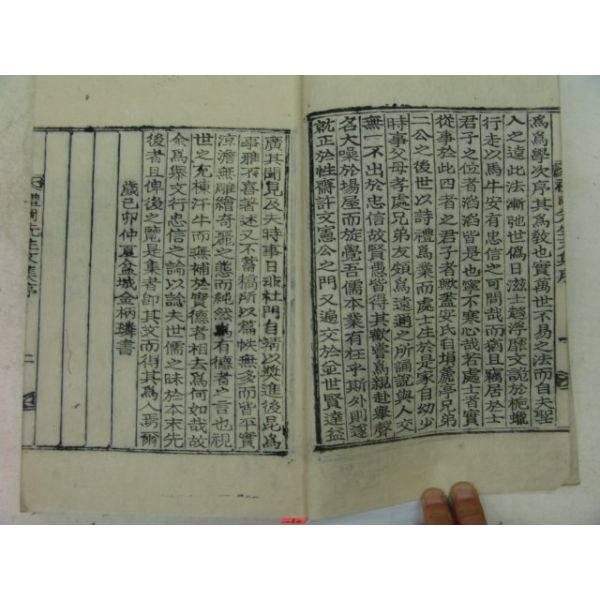 爲爲學次序其爲敎也實萬世不易之法而自夫聖
人之遠此法漸弛世僞日滋士趨浮靡文詭於梔蠟
行走以馬牛安有忠信之可間哉而猶且竊居於士
君子之位者滔滔皆是也寧不寒心哉若處士者實
從事於此四者之君子者歟蓋安氏自塤篪亭兄弟
二公之後世以詩禮爲業而處士生於是家自幼少
時事父母孝處兄弟友頗爲遠邇之所誦說與人交
無一不出於忠信故賢愚皆得其歡嘗爲親赴擧聲
名大噪於場屋而旋覺吾儒本業有在乎斯外則遂
就正於性齋許文憲公之門又遍交於金世賢達益
廣其聞見及夫時事日非杜門自靖以奬進後昆爲
事雅不喜著述又不蓄稿所以篇帙無多而皆平實
淙澹無雕繪奇麗之態而純然爲有德者之言也視
世之充棟汗牛而無補於實德者相去爲何如哉故
余爲擧文行忠信之論以論夫世儒之昧於本末先
後者且俾後之覽是集者卽其文而得其爲人焉爾
歲己卯仲夏盆城金柄璘書
先生文集序
二